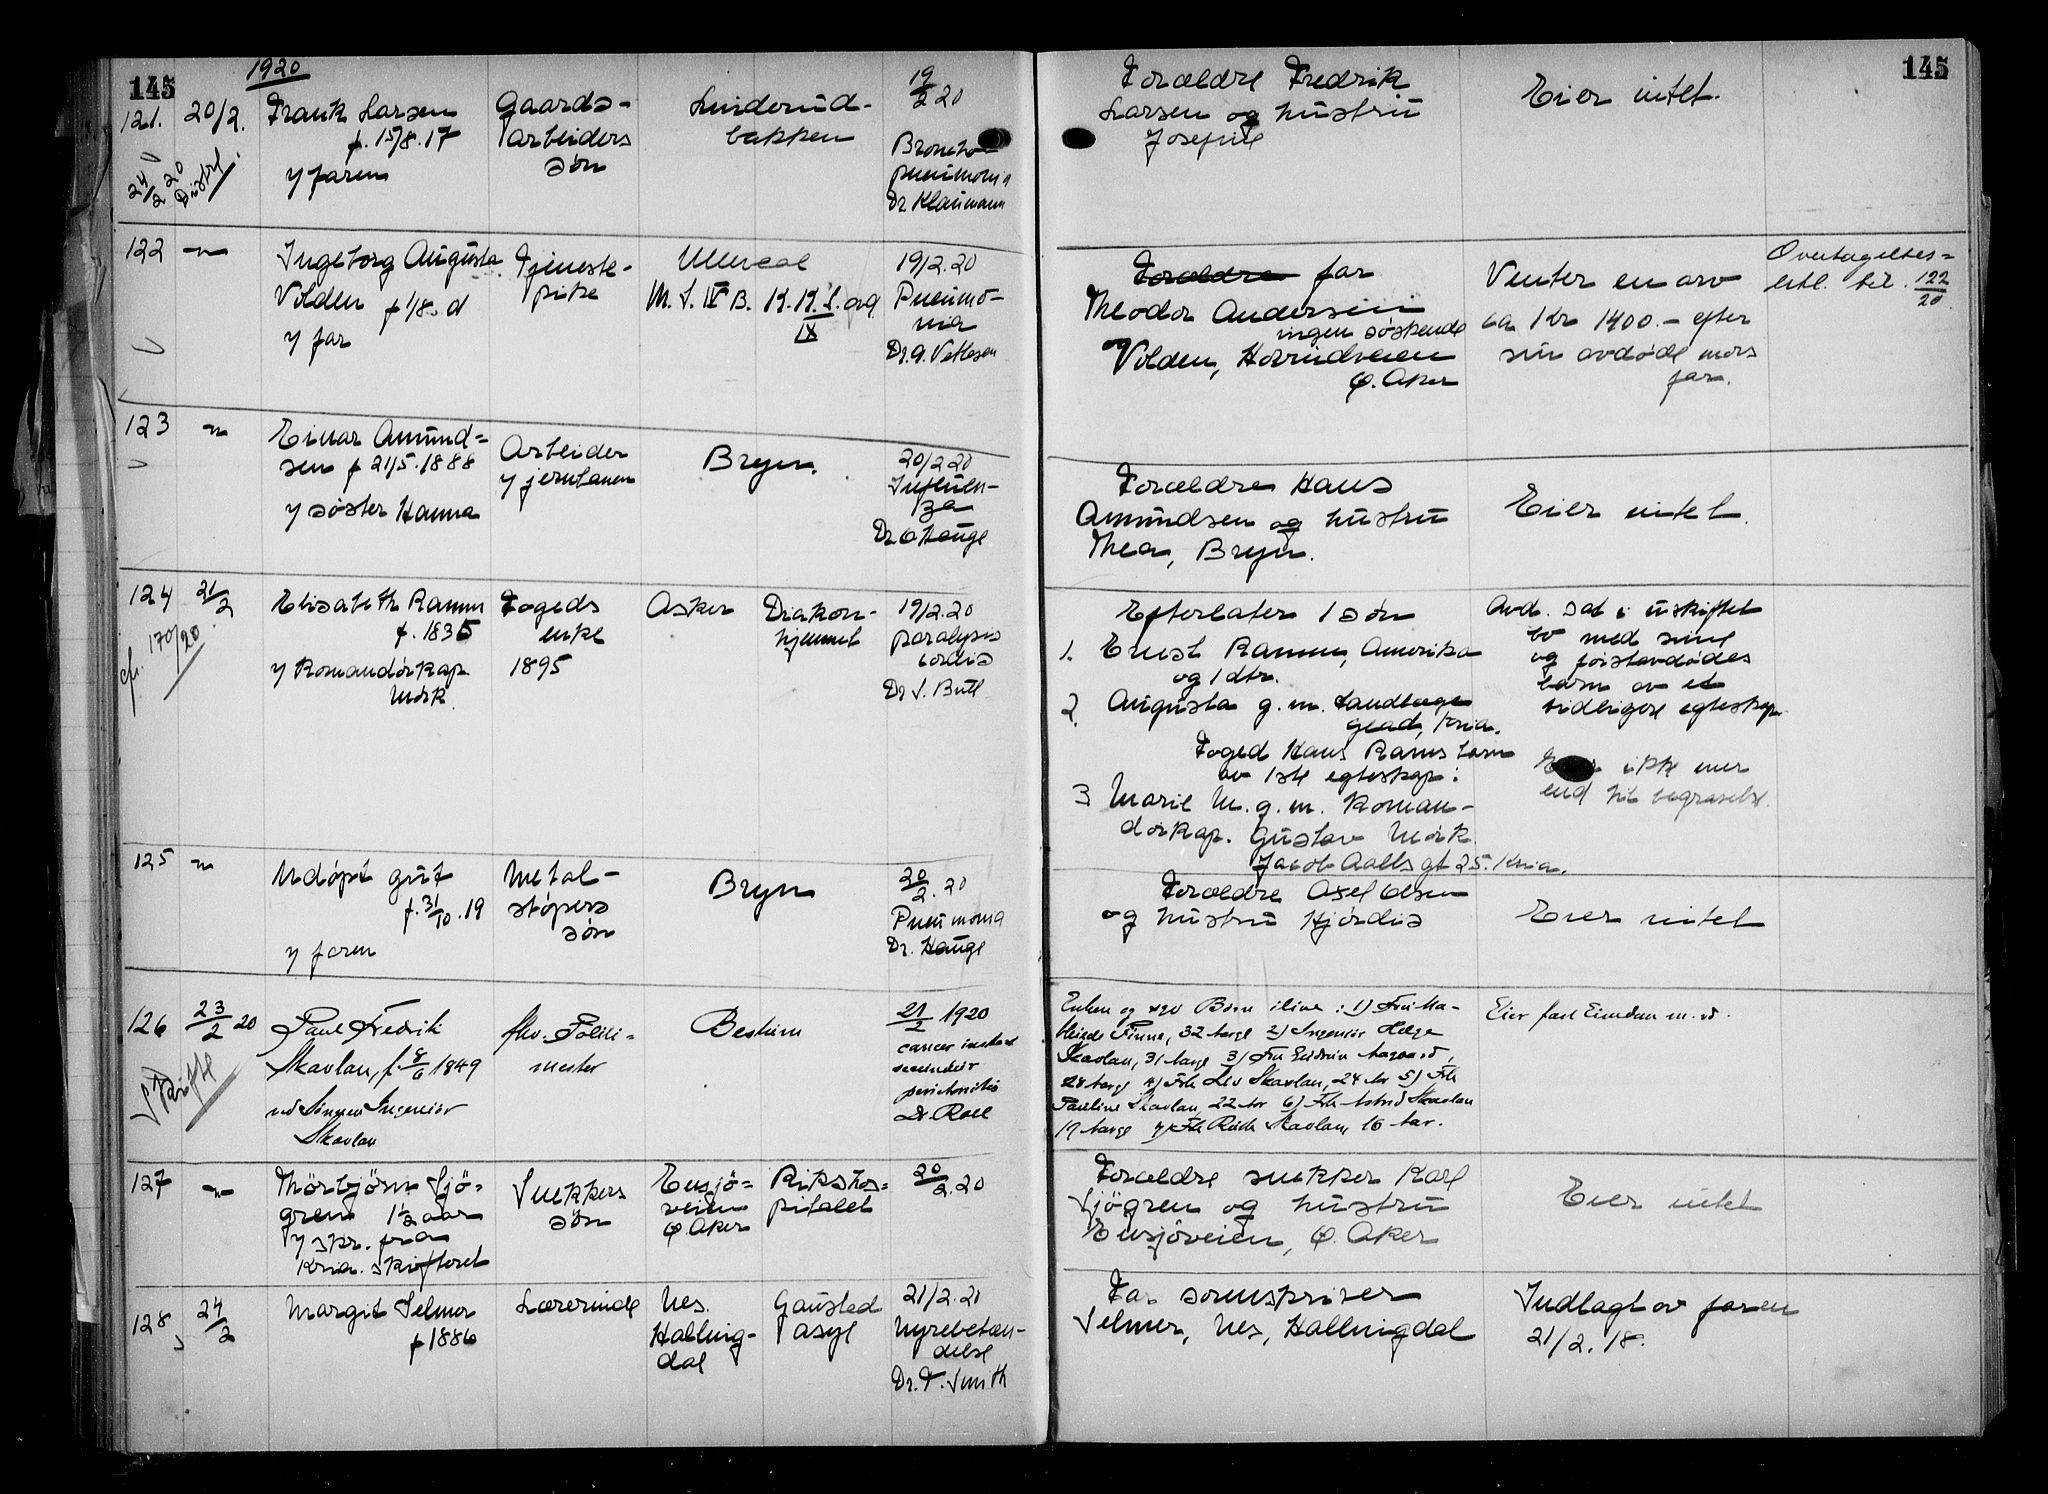 145
1920
145
121.
20/2.
24/2 20
Distrl.
Frank Larsen
f. 15/8.17
v/ faren
Gaards-
arbeiders
søn
Linderud-
bakken
19/2 20
Broncho-
pneumoni
Dr Klaumann
Forældre Fredrik
Larsen og hustru
Josefine
Eier intet.
122
-"-
Ingeborg Augusta
Volden f 1/8.
v/ far
Tjeneste-
pike
Ullevaal
M. S. IV B. K.K.S. avd
IX
19/2.20
Pneumo-
nia
Dr. A. Vetlesen
Forældre far
Theodor Andersen
ingen søskende
og
Volden, Hovindveien
Ø. Aker
Venter en arv
ca Kr 1400.- efter
sin avdøde mors
far.
Overtagelses=
erkl. til. 122/20.
123
-"-
Einar Amund=
sen f 21/5.1888
v/ søster Hanna
Arbeider
v/ jernbanen
Bryn.
20/2 20
Influen-
za
Dr Hauge
Forældre Hans
Amundsen og hustru
Thea, Bryn.
Eier intet.
124
21/2
cfr. 170/20
Elisabeth Ramm
f. 1835
v/ Komandørkap.
Mørk
Fogeds
enke
1895
Asker
Diakon-
hjemmet
19/2.20
paralysis
cordis
Dr J. Bull
Efterlater 1 søn
1. Ernst Ramm, Amerika
og 1 dtr.
2. Augusta g.m. Landbruge
Kria.
Foged Hans Ramms barn
av 1ste egteskap:
3 Marie M. g.m. Koman-
dørkap. Gustav Mørk
Jacob Aalls gt 25. Kria.
Avd. sat i uskiftet
bo med sine
og førstavdødes
barn av et
tidligere egteskap.
ikke mer
end til begravelse.
125
-"-
Udøpt gut
f. 31/10.19
v/ faren
Metal-
støpers
søn
Bryn
20/2. 20
Pneumonia
Dr. Hauge
Forældre Axel Olsen
og hustru Hjørdis
Eier intet
126
23/2 20
Skifte
Paul Fredrik
Skavlan, f. 8/6 1849
ved Sønnen Ingeniør
Skavlan
fhv. Politi-
mester
Bestum
21/2 1920
cancer intest
secundær
peritonitis
Dr. Roll
Enken og syv Børn ilive: 1) Fru Ma-
thilde Finne, 32 Aar 2) Ingeniør Helge
Skavlan, 31 Aar 3) Fru Gudrun Aagaard,
28 Aar 4) Frk Liv Skavlan, 24 Aar 5) Frk
Pauline Skavlan, 22 Aar 6) Frk Astrid Skavlan
19 Aar 7) Frk Ruth Skavlan, 16 Aar.
Eier fast Eiendom m.v.
127
-"-
Thörbjörn Sjö-
gren 1½ aar
v/ skr. fra
Kria. skifteret
Snekkers
søn
Ensjø-
veien
Ø. Aker
Rikshos=
pitalet
20/2.20
Forældre snekker Karl
Sjögren og hustru
Ensjøveien, Ø. Aker
Eier intet
128
24/2
Margit Selmer
f 1886
Lærerinde
Nes.
Halling-
dal
Gaustad
asyl
21/2.20
Nyrebetæn-
delse
Dr. F. Smith
Far sorenskriver
Selmer, Nes, Hallingdal
Indlagt av faren
21/2. 18.